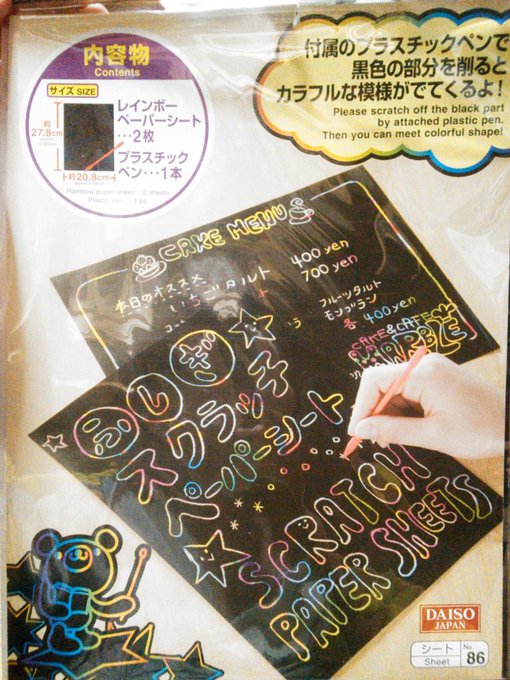 内容物
Contents
サイズ SIZE
約
27.8cm
約20.8cm
レインボー
ペーパーシート
…2枚
プラスチック
ペン…1本
Rainbow paper sheet…2 sheets
Plastic pen…1 pc.
付属のプラスチックペンで
黒色の部分を削ると
カラフルな模様がでてくるよ!
Please scratch off the black part
by attached plastic pen.
Then you can meet colorful shape!
CAKE MENU
本日のオススメ
いちごタルト 400yen
700yen
フルーツタルト
モンブラン
各 400yen
CAKE&CAFE
ふしぎ
スクラッチ
ペーパーシート
SCRATCH
PAPER SHEETS
DAISO
JAPAN
シート
Sheet
No.
86